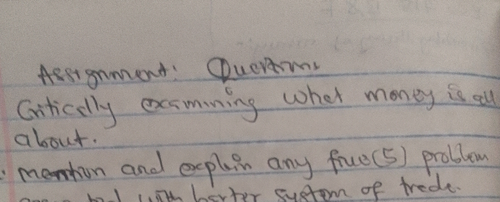 Assignment: Question
Critically examining what money is all
about.
mention and explain any five (5) problem
with barter system of trade.